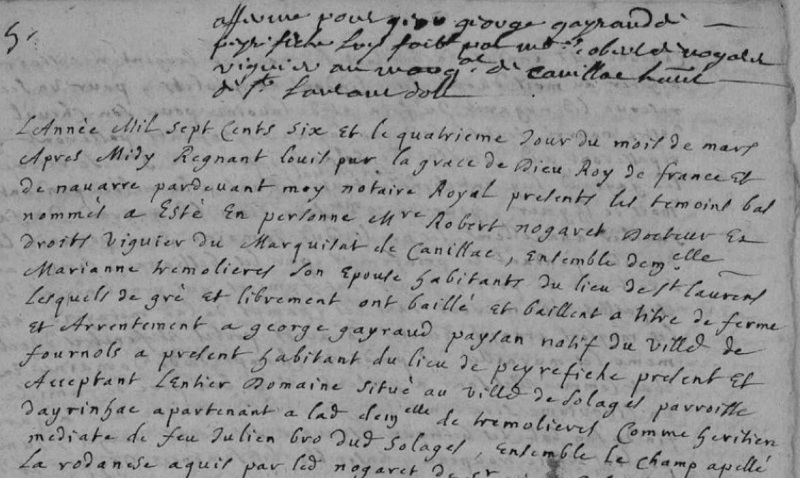 5.
afferme pour george gayraud de
peyrefiche luy fait par mr robert nogaret
viguier au marqat de canillac haut
de st laurans dolt
Lannèe Mil sept Cents six et le quatrieme Jour du mois de mars
Apres Midy Regnant louis pur la grace de Dieu Roy de france et
de navarre pardevant moy notaire Royal presents les temoins bas
nommès a Estè En personne Mre Robert nogaret Docteur Ez
droits viguier du Marquisat de Canillac, Ensemble demelle
Marianne tremolieres son Epouse habitants du lieu de st laurens
Lesquels de grè et librement ont baillé et baillent a titre de ferme
et Arrentement a george gayraud paysan natif du villd de
fournols a present habitant du lieu de peyrefiche present et
Acceptant Lentier Domaine situè au villd de Solages parroisse
dayrinhac apartenant a lad demelle de tremolieres Comme heritiere
mediate de feu Julien bro dud Solages, Ensemble le champ apellé
La rodanese aquis par led nogaret de sr